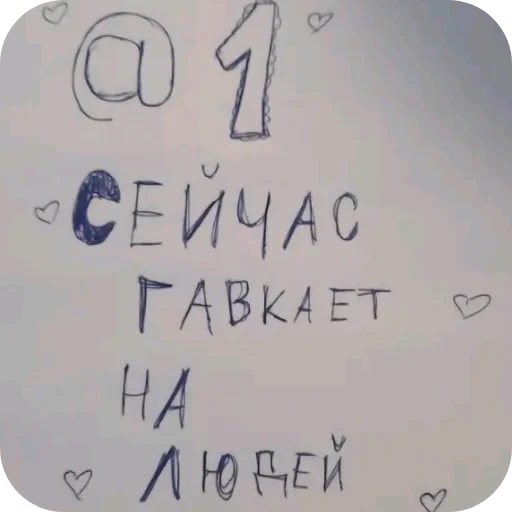 @1
СЕЙЧАС
ГАВКАЕТ
НА
ЛЮДЕЙ